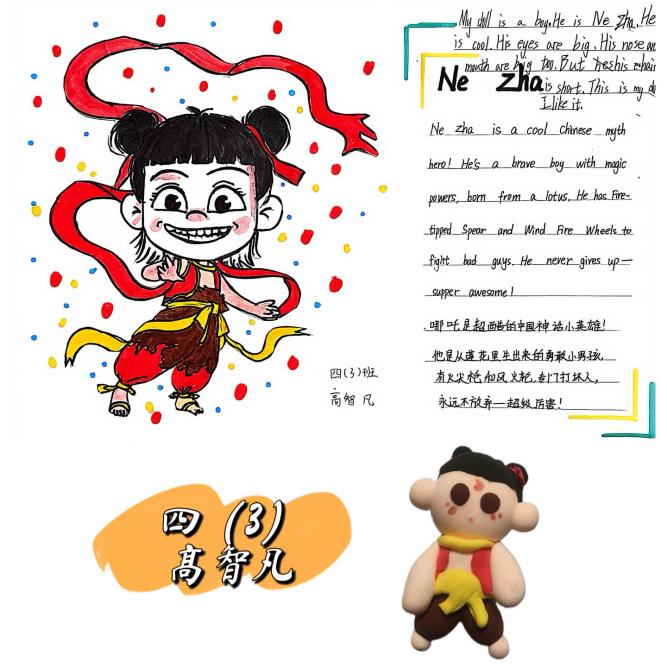 My doll is a boy. He is Ne zha. He
is cool. His eyes are big. His nose an
mouth are big too. But hair
is short. This is my do
I like it.
Ne zha
Ne zha is a cool chinese myth
hero! He's a brave boy with magic
powers, born from a lotus. He has Fire-
tipped Spear and Wind Fire Wheels to
fight bad guys. He never gives up—
supper awesome!
哪吒是超酷的中国神话小英雄!
他是从莲花里生出来的勇敢小男孩
有火尖枪和风火轮,专门打坏人,
永远不放弃—超级厉害!
四(3)班
高智凡
四(3)
高智凡